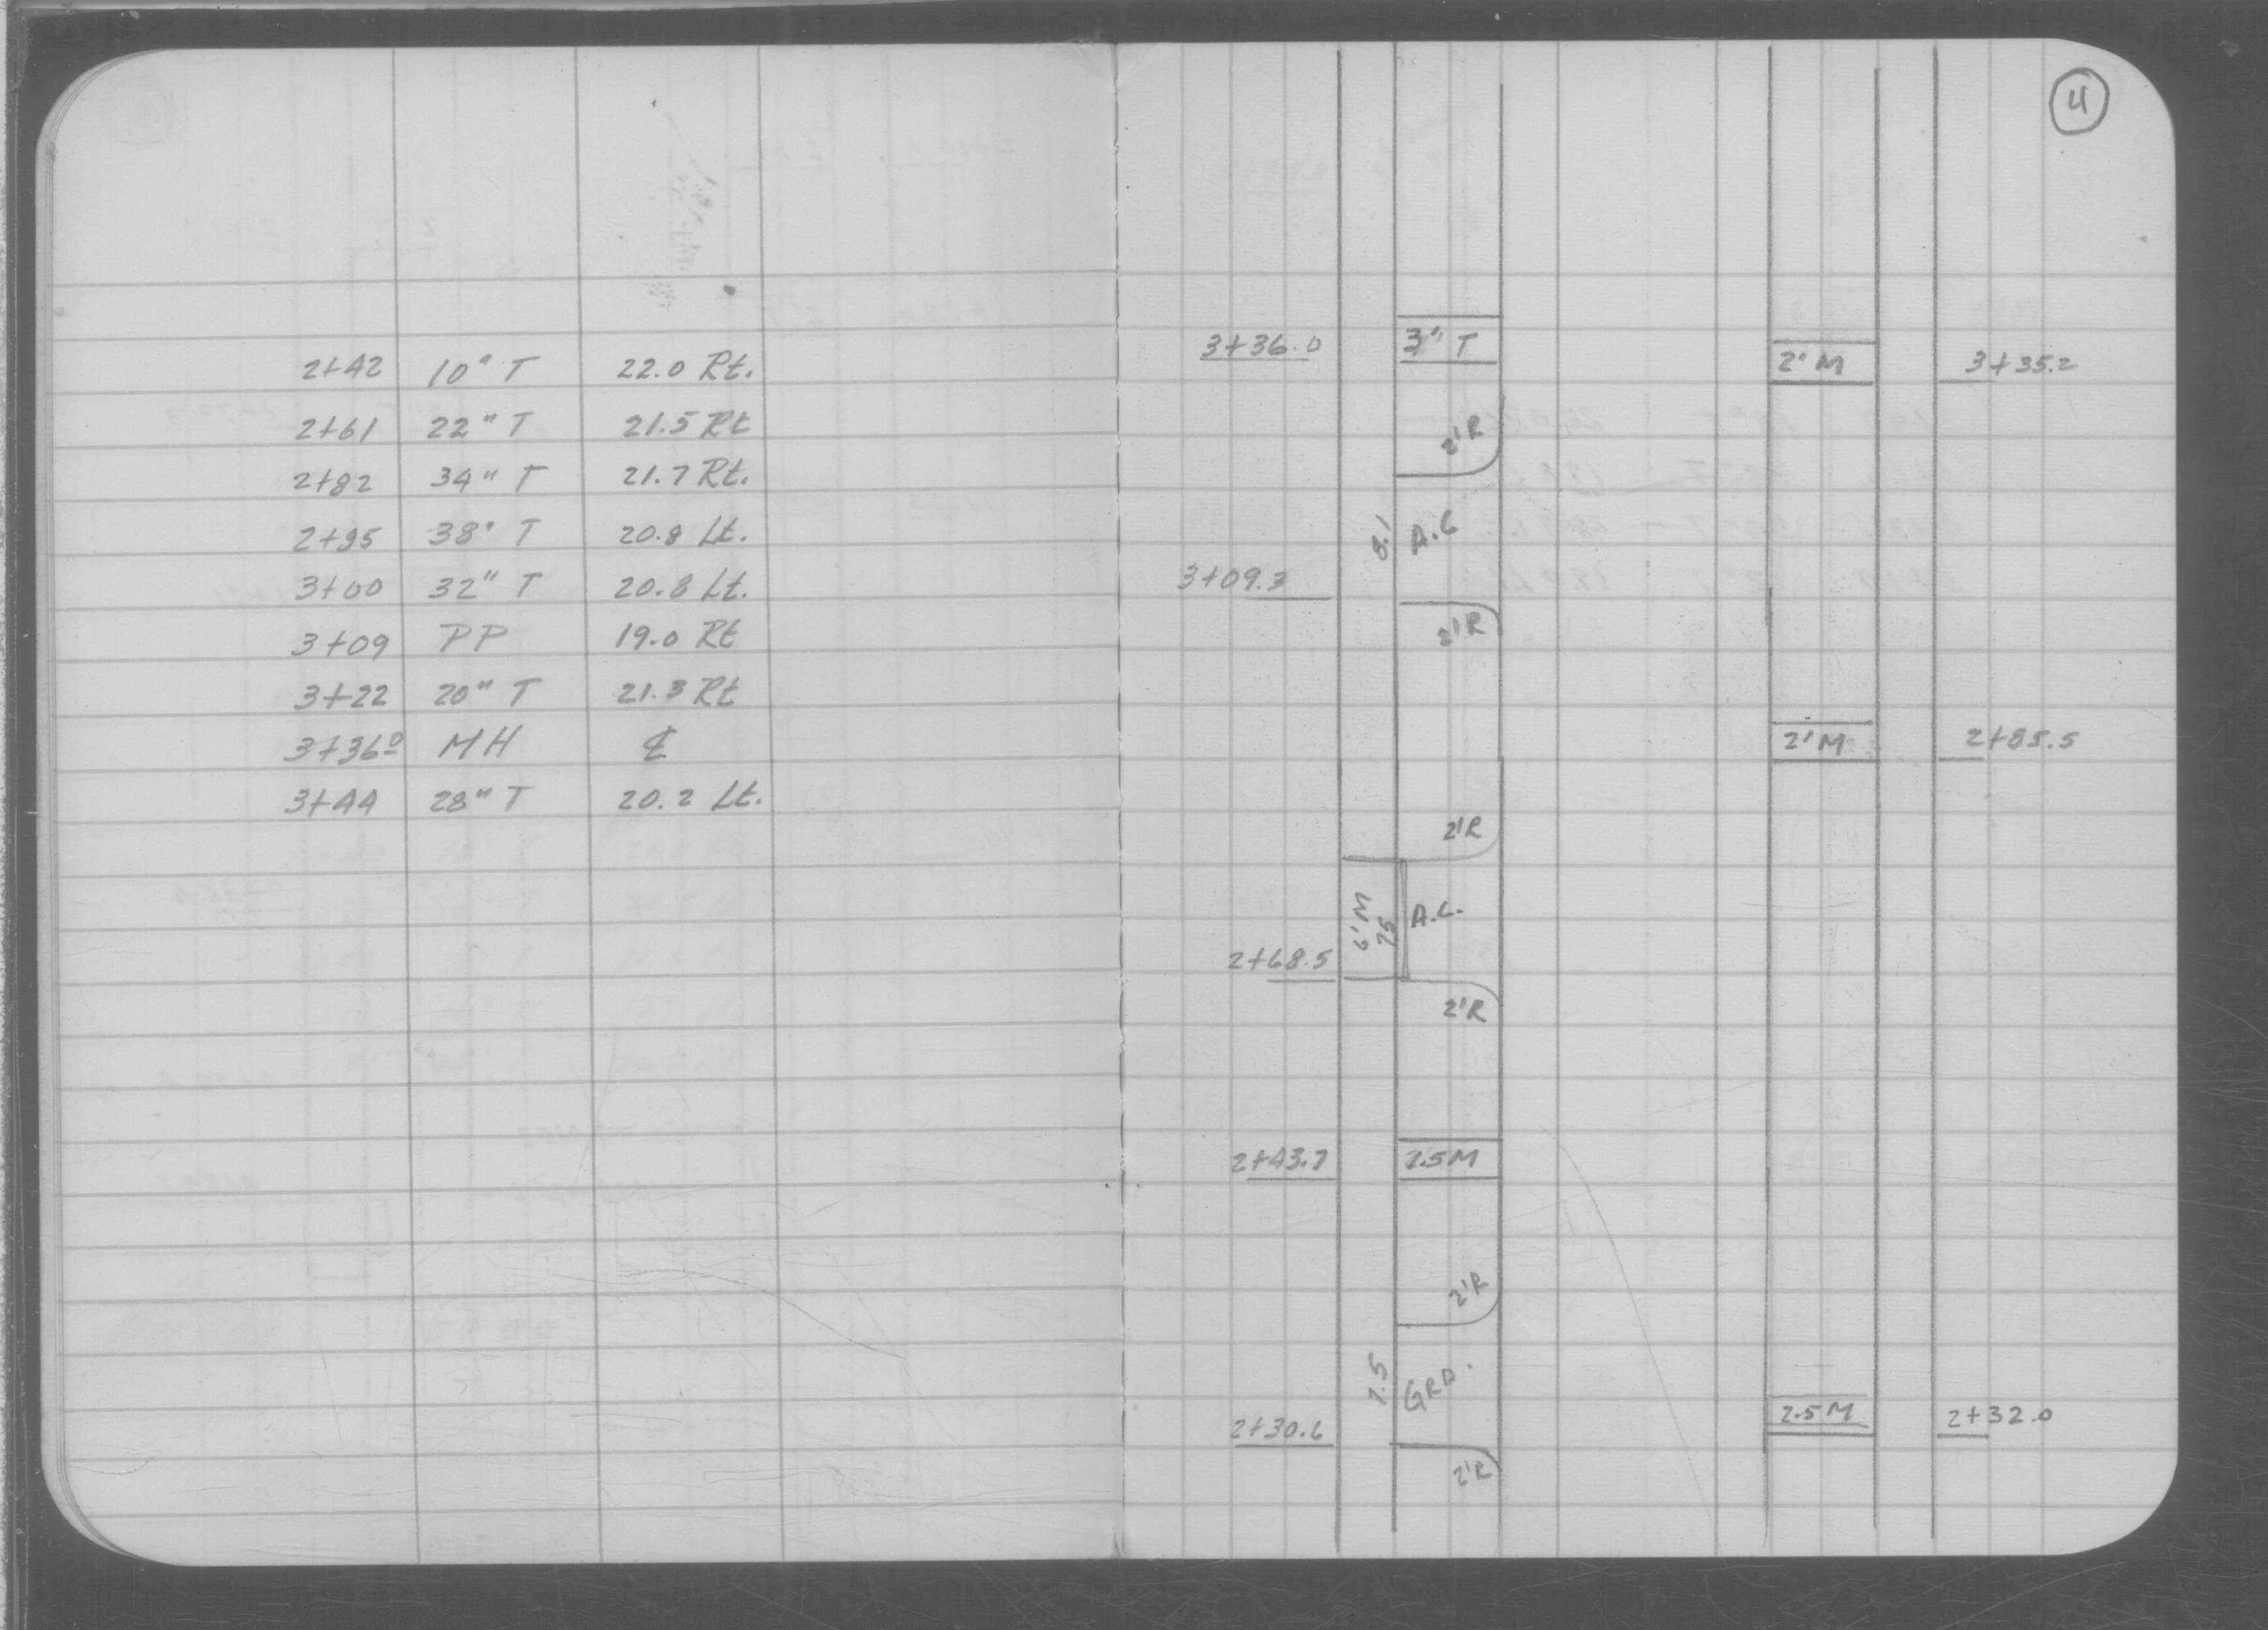 2+42 10" T 22.0 Rt.
2+61 22" T 21.5 Rt
2+82 34" T 21.7 Rt.
2+95 38" T 20.8 Lt.
3+00 32" T 20.8 Lt.
3+09 PP 19.0 Rt
3+22 20" T 21.3 Rt
3+36º MH ℄
3+44 28" T 20.2 Lt.
4
3+36.0 3" T 2' M 3+35.2
2'R
8.1 A.C
3+09.3
2'R
2'M 2+85.5
2'R
6'M
75 A.C.
2+68.5
2'R
2+43.7 2.5M
2'R
7.5 GRD.
2.5M 2+32.0
2+30.6
2'R